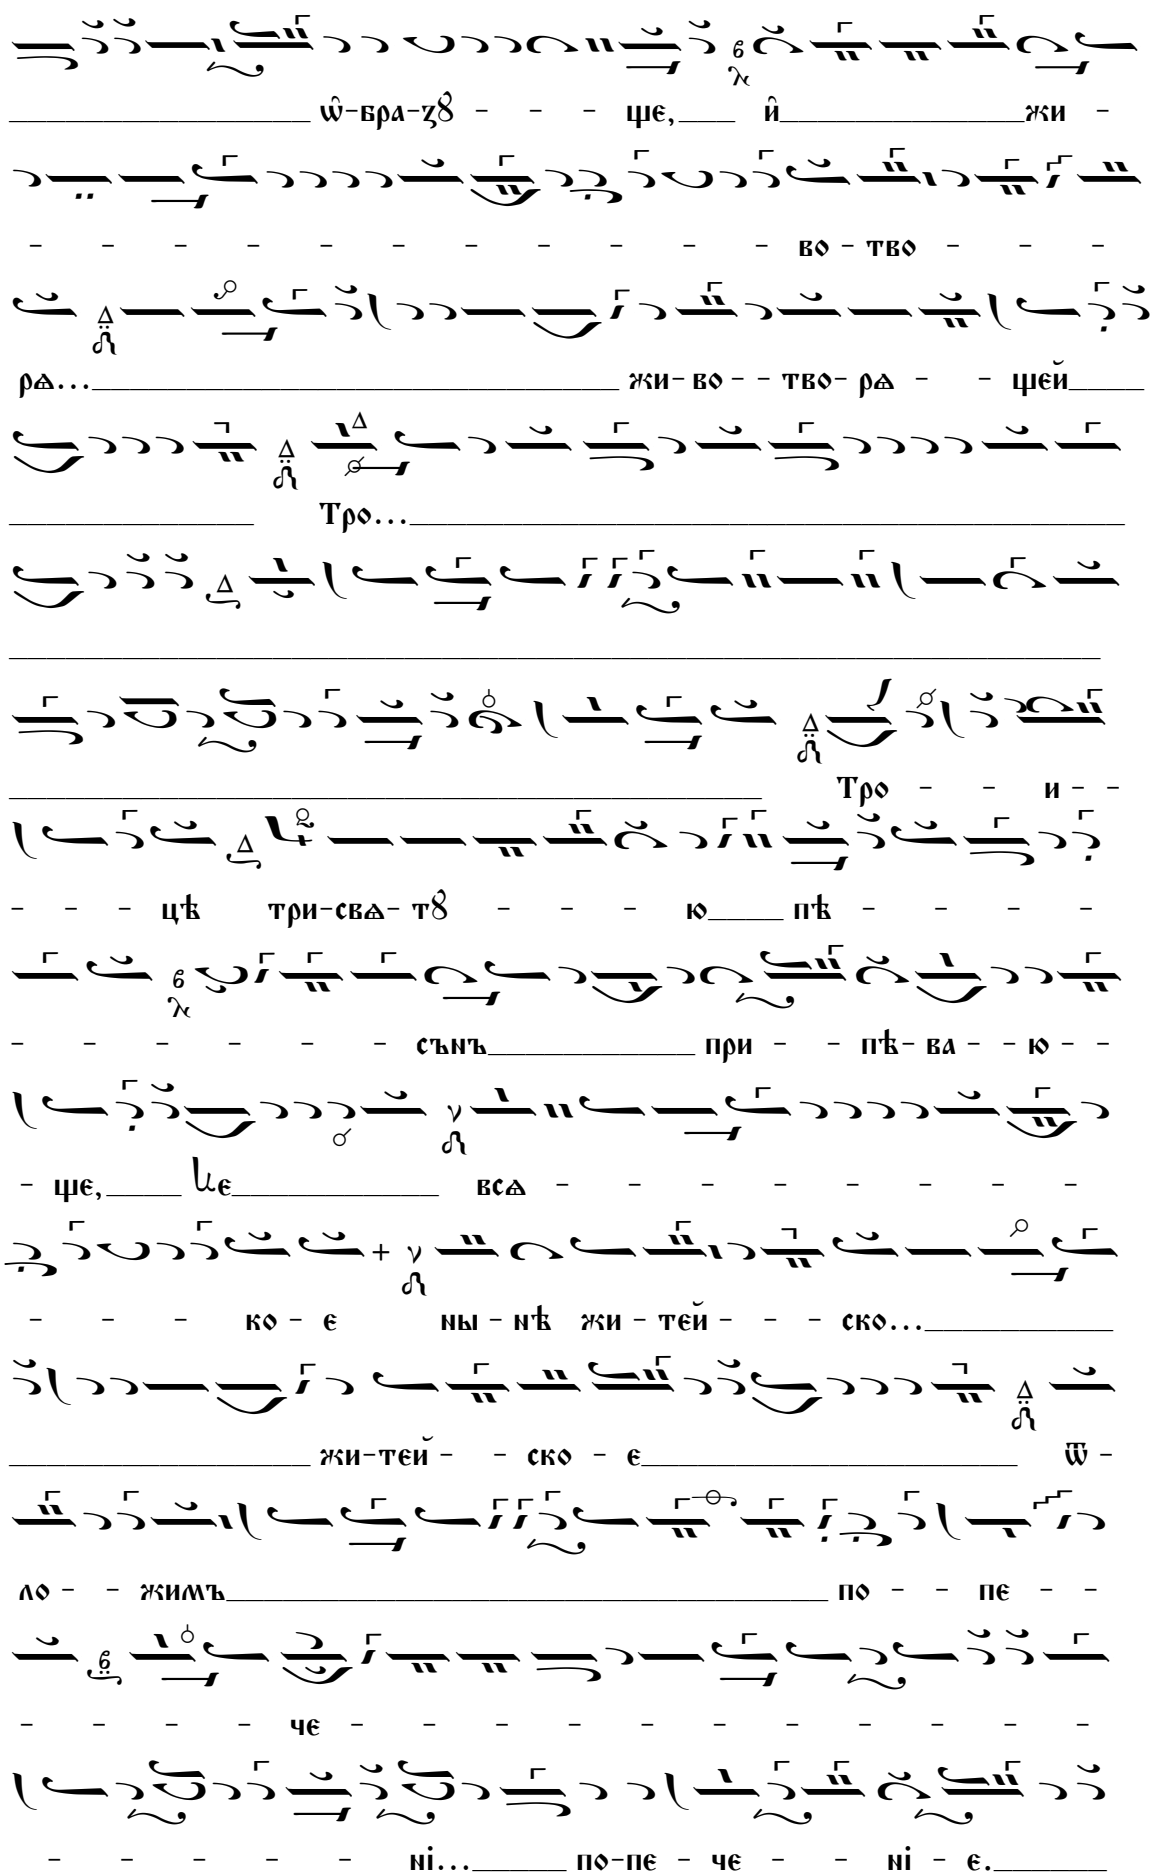 ѡ҆̑-бра-зꙋ́ - - - ще, и҆̑ жи -
- - - - - - - - - - - во - тво - - -
рѧ... жи - во - - тво - рѧ - - щей
Тро...
Тро - - и - -
- - - цѣ три-свѧ- тꙋ́ - - - ю пѣ - - - -
- - - - - - сѣнь при - - пѣ- ва - - ю - -
- ще, не всѧ - - - - - - - -
- - - ко - е ны - нѣ жи - тей - - - ско...
жи-тей - - ско - е ѿ -
ло - - жимъ по - - пе - -
- - - - че - - - - - - - - - - -
- - - - - нї... по-пе - че - - нї - е.